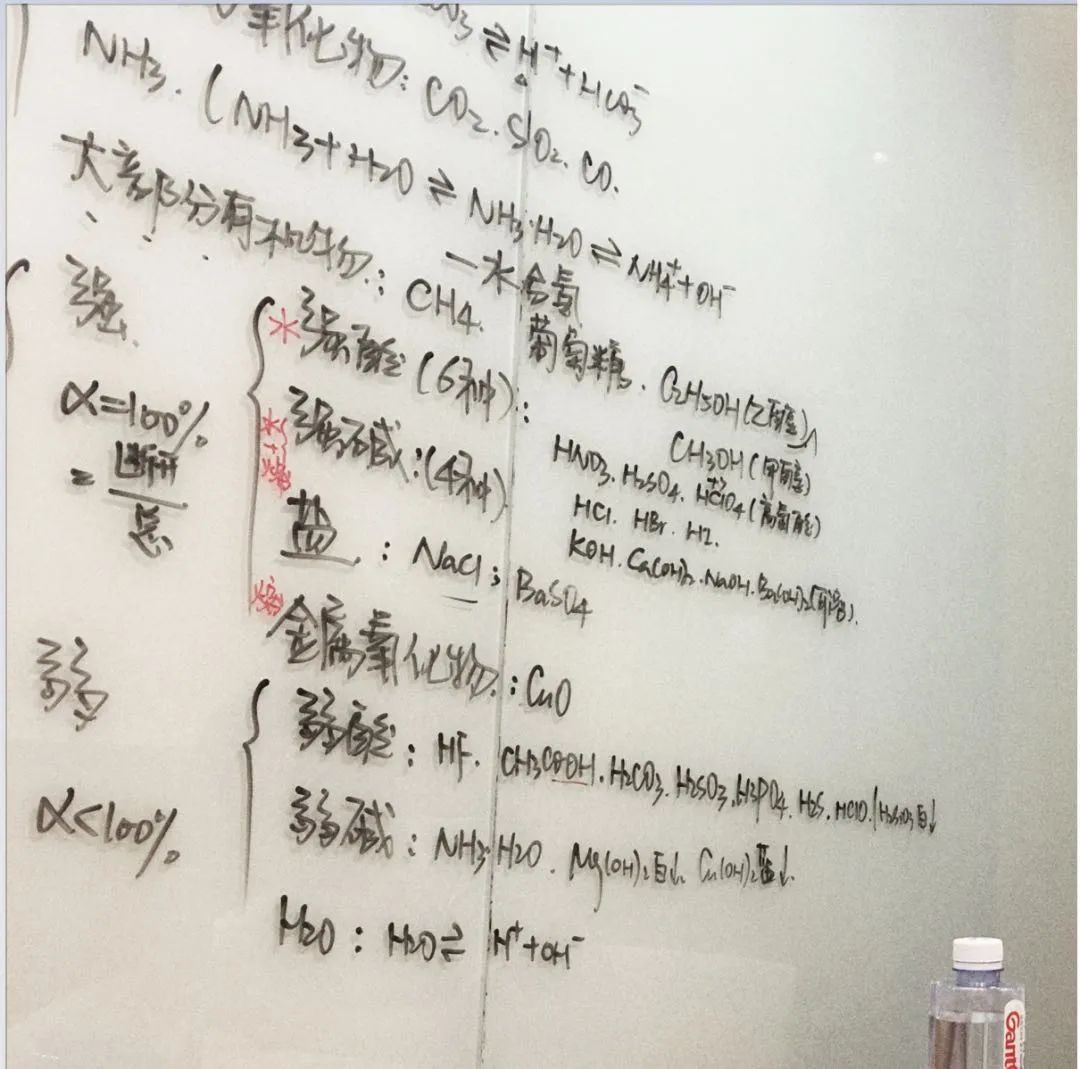 ⇌ H⁺ + HCO₃⁻
氧化物: CO₂. SiO₂. CO.
NH₃. (NH₃ + H₂O ⇌ NH₃·H₂O ⇌ NH₄⁺ + OH⁻
一水合氨
大部分有机物: CH4. 葡萄糖. C₂H5OH (乙醇)
CH3OH (甲醇)
强
α=100%
= 断开/总
* 强酸 (6种): HNO₃. H₂SO₄. HClO₄ (高氯酸)
HCl. HBr. HI.
* 强碱: (4种) KOH. Ca(OH)₂. NaOH. Ba(OH)₂ (可溶).
盐 : NaCl; BaSO4
金属氧化物: CuO
弱
α<100%
弱酸: HF. CH3COOH. H₂CO₃. H₂SO₃. H3PO4. H₂S. HClO. (H₂SiO₃ 白↓
弱碱: NH₃·H₂O. Mg(OH)₂ 白↓. Cu(OH)₂ 蓝↓.
H₂O : H₂O ⇌ H⁺ + OH⁻
Gant